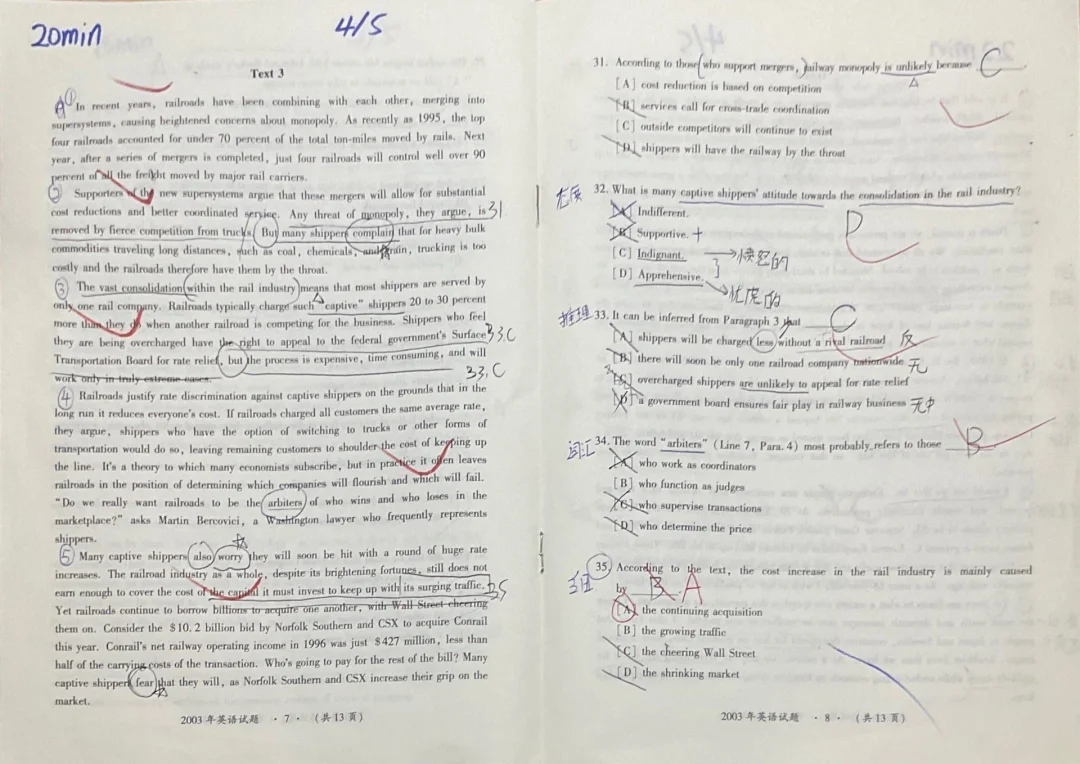 20min
4/5
Text 3
A ① In recent years, railroads have been combining with each other, merging into
supersystems, causing heightened concerns about monopoly. As recently as 1995, the top
four railroads accounted for under 70 percent of the total ton-miles moved by rails. Next
year, after a series of mergers is completed, just four railroads will control well over 90
percent of all the freight moved by major rail carriers.
② Supporters of the new supersystems argue that these mergers will allow for substantial
cost reductions and better coordinated service. Any threat of monopoly, they argue, is 31
removed by fierce competition from trucks. But many shippers complain that for heavy bulk
commodities traveling long distances, such as coal, chemicals, and grain, trucking is too
costly and the railroads therefore have them by the throat.
③ The vast consolidation within the rail industry means that most shippers are served by
only one rail company. Railroads typically charge such "captive" shippers 20 to 30 percent
more than they do when another railroad is competing for the business. Shippers who feel
they are being overcharged have the right to appeal to the federal government's Surface 33.C
Transportation Board for rate relief, but the process is expensive, time consuming, and will
work only in truly extreme cases. 33.C
④ Railroads justify rate discrimination against captive shippers on the grounds that in the
long run it reduces everyone's cost. If railroads charged all customers the same average rate,
they argue, shippers who have the option of switching to trucks or other forms of
transportation would do so, leaving remaining customers to shoulder the cost of keeping up
the line. It's a theory to which many economists subscribe, but in practice it often leaves
railroads in the position of determining which companies will flourish and which will fail.
"Do we really want railroads to be the arbiters of who wins and who loses in the
marketplace?" asks Martin Bercovici, a Washington lawyer who frequently represents
shippers.
⑤ Many captive shippers also worry they will soon be hit with a round of huge rate
increases. The railroad industry as a whole, despite its brightening fortunes, still does not
earn enough to cover the cost of the capital it must invest to keep up with its surging traffic. 35
Yet railroads continue to borrow billions to acquire one another, with Wall Street cheering
them on. Consider the $10.2 billion bid by Norfolk Southern and CSX to acquire Conrail
this year. Conrail's net railway operating income in 1996 was just $427 million, less than
half of the carrying costs of the transaction. Who's going to pay for the rest of the bill? Many
captive shippers fear that they will, as Norfolk Southern and CSX increase their grip on the
market.
2003 年英语试题 · 7 · (共 13 页)
31. According to those who support mergers, railway monopoly is unlikely because C
[A] cost reduction is based on competition
[B] services call for cross-trade coordination
[C] outside competitors will continue to exist
[D] shippers will have the railway by the throat
态度 32. What is many captive shippers' attitude towards the consolidation in the rail industry?
[A] Indifferent.
[B] Supportive. +
D
[C] Indignant. → 愤怒的
[D] Apprehensive. → 忧虑的
推理 33. It can be inferred from Paragraph 3 that C
[A] shippers will be charged less without a rival railroad 反
[B] there will soon be only one railroad company nationwide 无
[C] overcharged shippers are unlikely to appeal for rate relief
[D] a government board ensures fair play in railway business 无中
词汇 34. The word "arbiters" (Line 7, Para. 4) most probably refers to those B
[A] who work as coordinators
[B] who function as judges
[C] who supervise transactions
[D] who determine the price
35. According to the text, the cost increase in the rail industry is mainly caused
by B A
[A] the continuing acquisition
[B] the growing traffic
[C] the cheering Wall Street
[D] the shrinking market
2003 年英语试题 · 8 · (共 13 页)